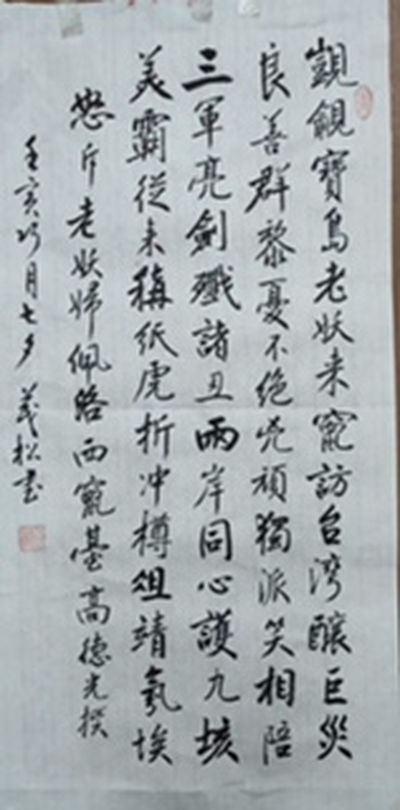 覬覦寶島老妖来竄訪台湾釀巨災
良善群黎憂不绝兇頑獨派笑相陪
三軍亮劍殲諸丑兩岸同心護九垓
美霸從来稱纸虎折冲樽俎靖氛埃
怒斥老妖婦佩洛西竄臺高德光撰
壬寅巧月七夕茂松书